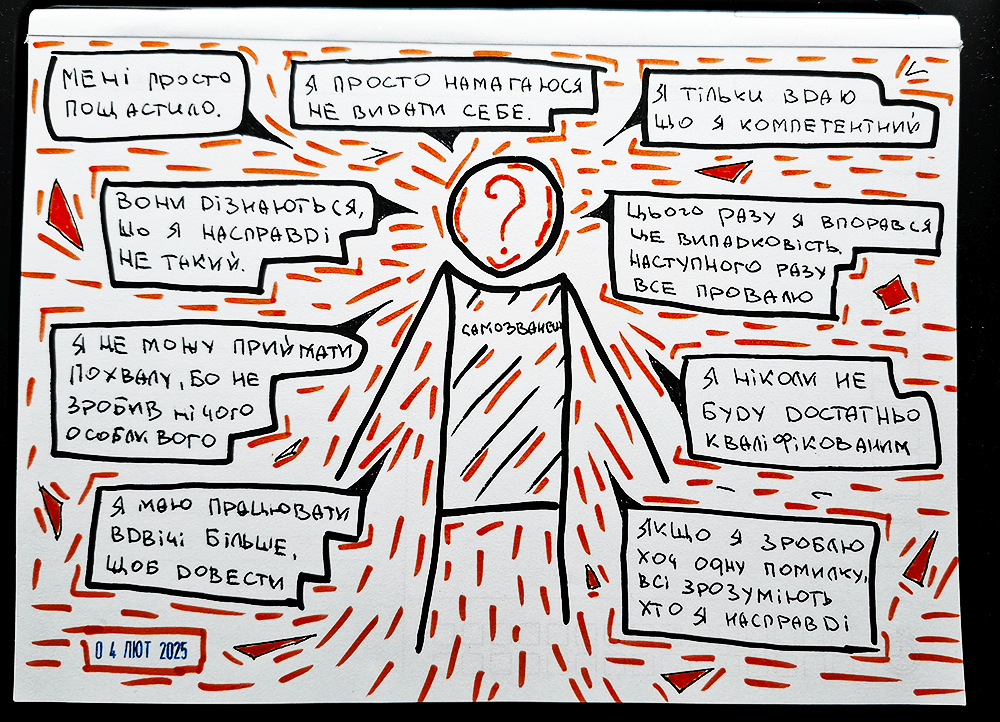 МЕНІ ПРОСТО
ПОЩАСТИЛО.
Я ПРОСТО НАМАГАЮСЯ
НЕ ВИДАТИ СЕБЕ.
Я ТІЛЬКИ ВДАЮ
ЩО Я КОМПЕТЕНТНИЙ
ВОНИ ДІЗНАЮТЬСЯ,
ЩО Я НАСПРАВДІ
НЕ ТАКИЙ.
?
ЦЬОГО РАЗУ Я ВПОРАВСЯ
ЦЕ ВИПАДКОВІСТЬ.
НАСТУПНОГО РАЗУ
ВСЕ ПРОВАЛЮ
САМОЗВАНЕЦЬ
Я НЕ МОЖУ ПРИЙМАТИ
ПОХВАЛУ, БО НЕ
ЗРОБИВ НІЧОГО
ОСОБЛИВОГО
Я НІКОЛИ НЕ
БУДУ ДОСТАТНЬО
КВАЛІФІКОВАНИМ
Я МАЮ ПРАЦЮВАТИ
ВДВІЧІ БІЛЬШЕ,
ЩОБ ДОВЕСТИ
ЯКЩО Я ЗРОБЛЮ
ХОЧ ОДНУ ПОМИЛКУ,
ВСІ ЗРОЗУМІЮТЬ
ХТО Я НАСПРАВДІ
04 ЛЮТ 2025